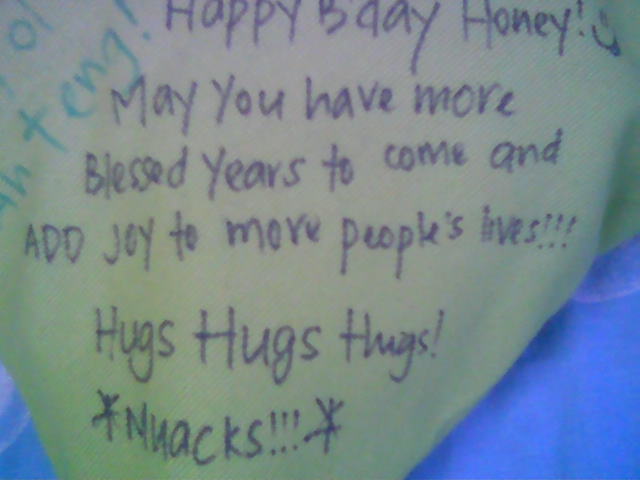 Happy B'day Honey!
May You have more
Blessed Years to come and
ADD Joy to more people's lives!!!
Hugs Hugs Hugs!
*Muacks!!!*